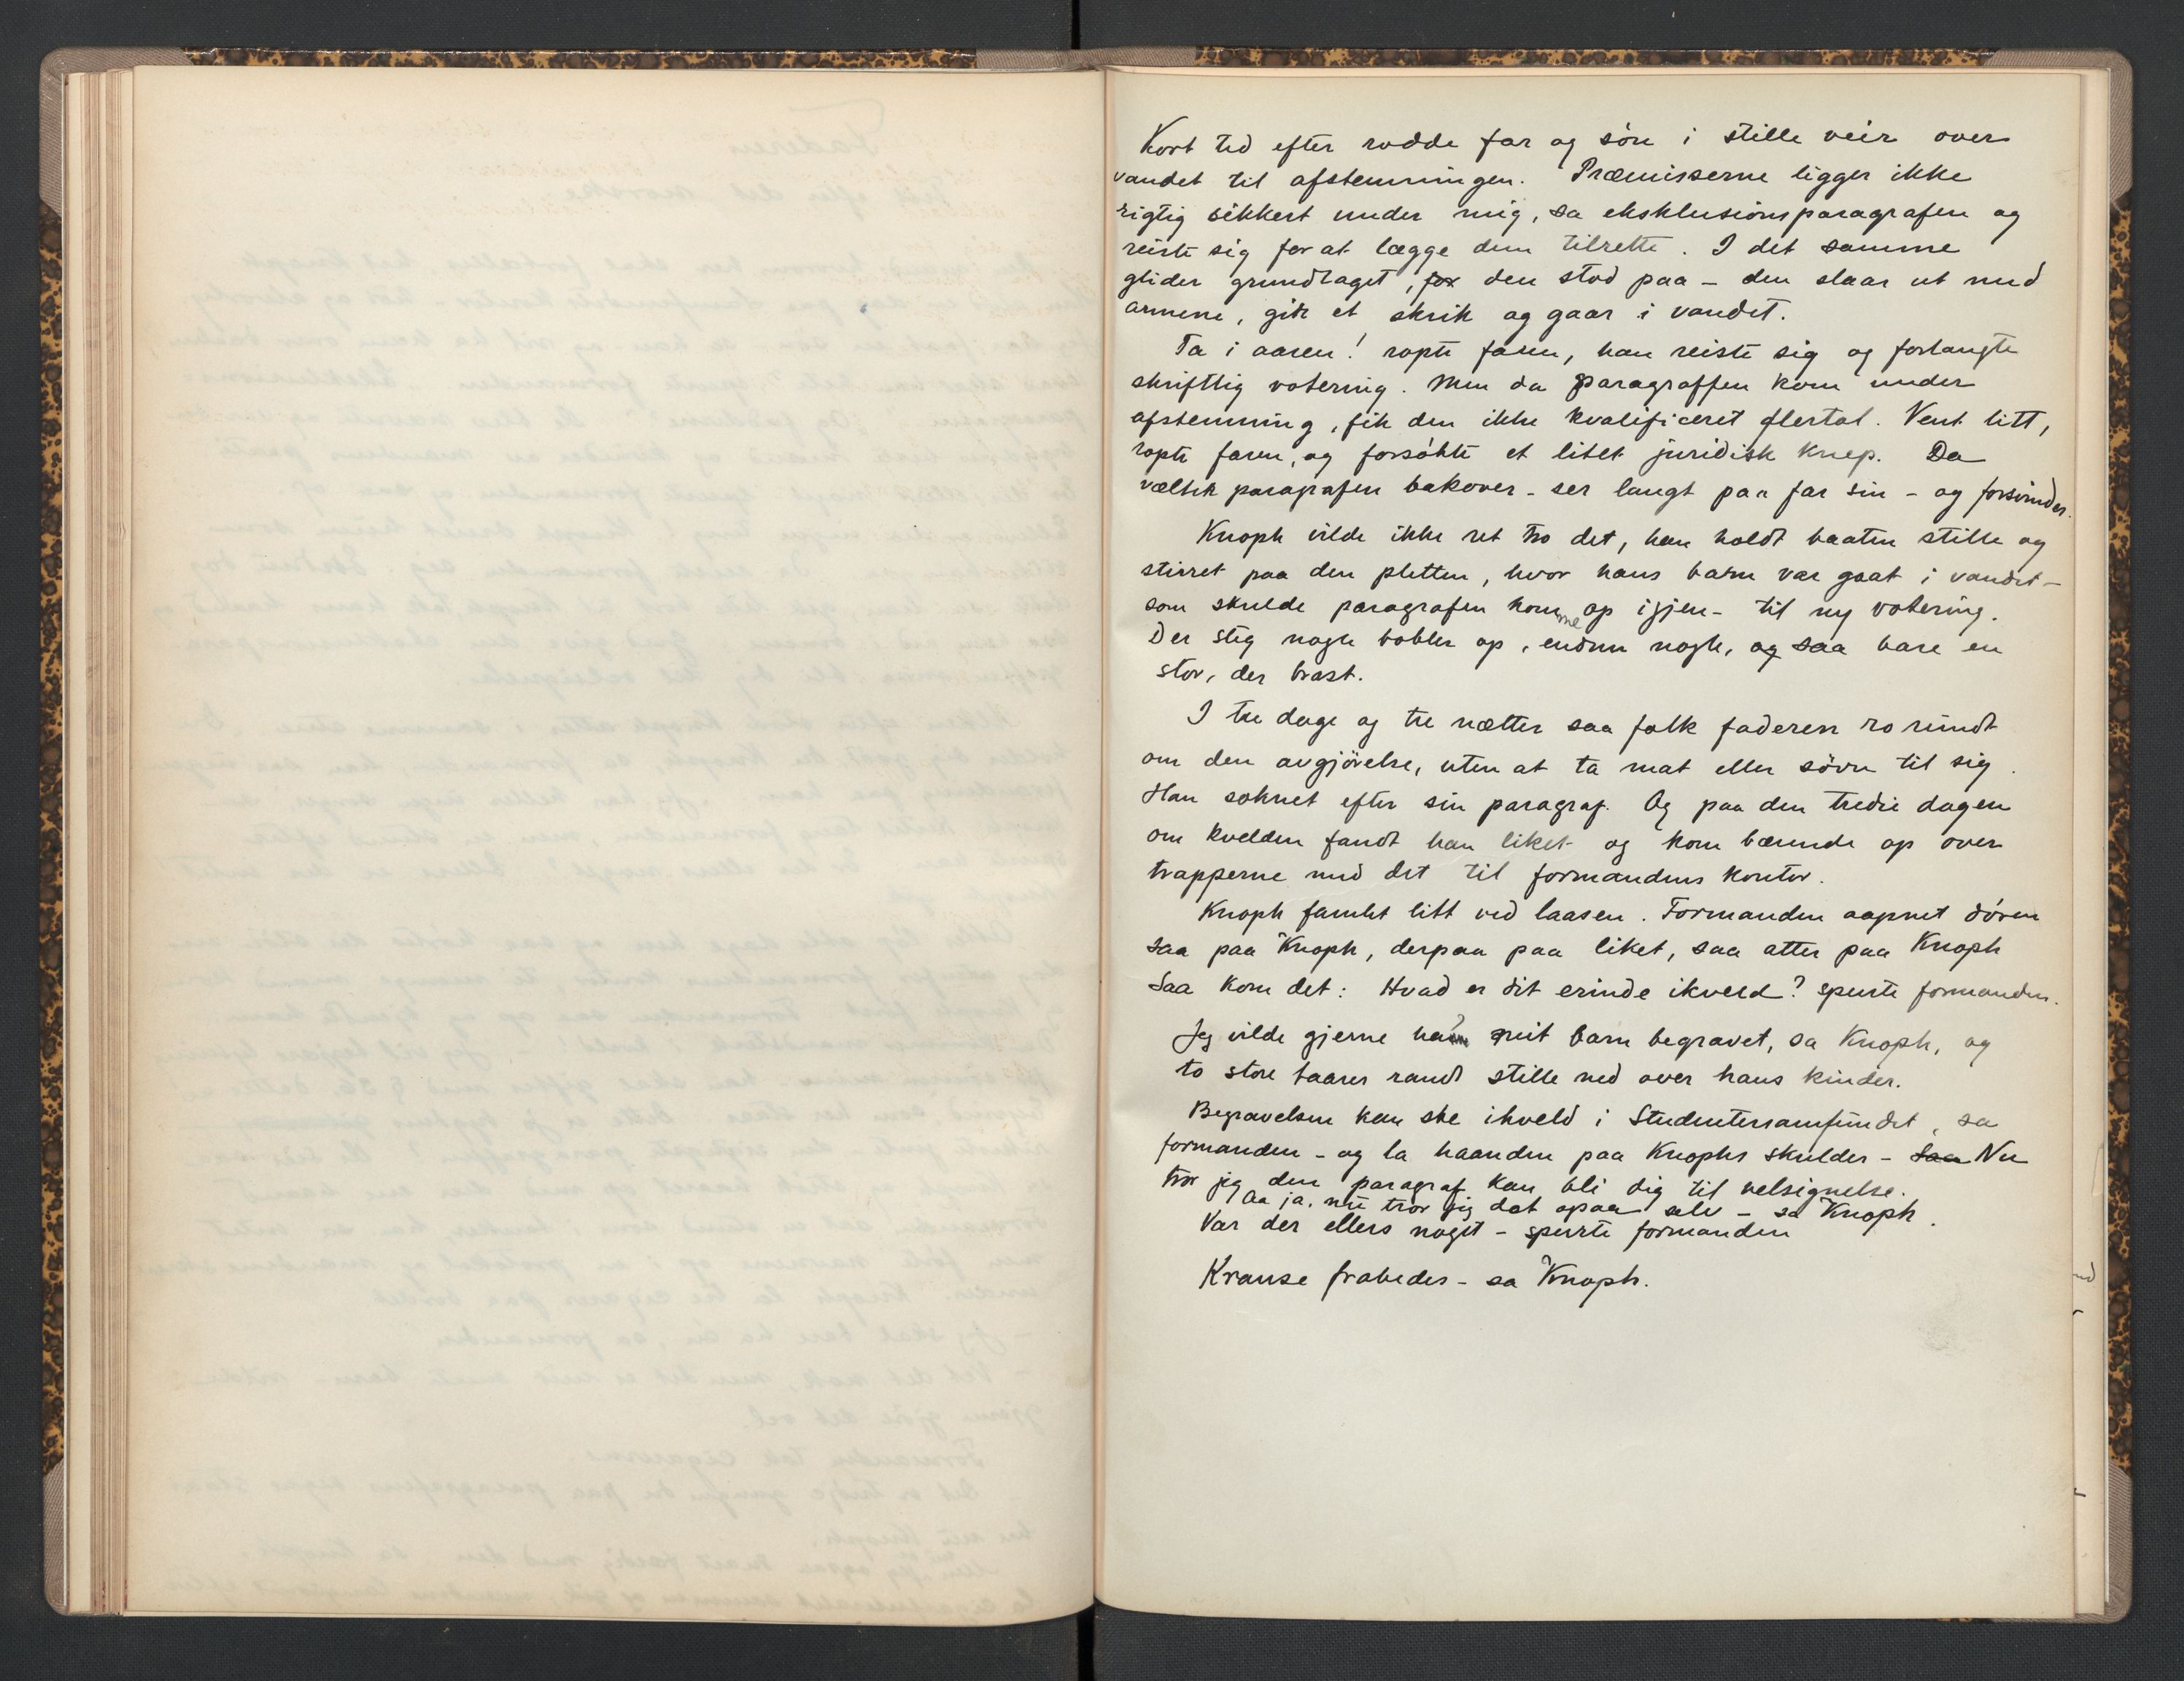 Kort tid efter rodde far og søn i stille veir over
vandet til afstemningen. Præmisserne ligger ikke
rigtig sikkert under mig, sa eksklusionsparagrafen og
reiste sig for at lægge dem tilrette. I det samme
glider grundlaget, for den stod paa – den slaar ut med
armene, gir et skrik og gaar i vandet.
Ta i aaren! ropte faren, han reiste sig og forlangte
skriftlig votering. Men da paragraffen kom under
afstemning, fik den ikke kvalificeret flertal. Vent litt,
ropte faren, og forsøkte et litet juridisk knep. Da
vælter paragrafen bakover – ser langt paa far sin – og forsvinder.
Knoph vilde ikke ret tro det, han holdt baaten stille og
stirret paa den pletten, hvor hans barn var gaat i vandet –
som skulde paragrafen komme op igjen – til ny votering.
Der steg nogle bobler op, endnu nogle, og saa bare en
stor, der brast.
I tre dage og tre nætter saa folk faderen ro rundt
om den avgjørelse, uten at ta mat eller søvn til sig.
Han soknet efter sin paragraf. Og paa den tredie dagen
om kvelden fandt han liket og kom bærende op over
trapperne med det til formandens kontor.
Knoph famlet litt ved laasen. Formanden aapnet døren
saa paa Knoph, derpaa paa liket, saa atter paa Knoph
Saa kom det: Hvad er dit erinde ikveld? spurte formanden.
Jeg vilde gjerne ha mit barn begravet, sa Knoph, og
to store taarer randt stille ned over hans kinder.
Begravelsen kan ske ikveld i Studentersamfundet, sa
formanden – og la haanden paa Knophs skulder – Saa Nu
tror jeg den paragraf kan bli dig til velsignelse.
Aa ja. nu tror jeg det ogsaa selv – sa Knoph.
Var der ellers noget – spurte formanden
Kranse frabedes – sa Knoph.